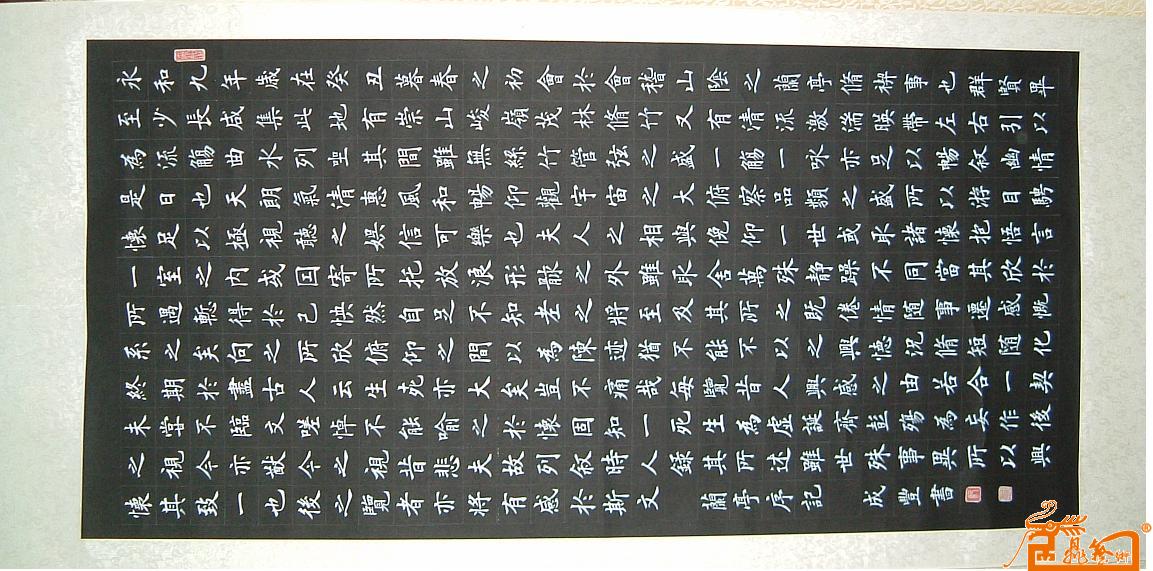 永和九年歲在癸丑暮春之初會於會稽山陰之蘭亭脩禊事也群賢畢
至少長咸集此地有崇山峻嶺茂林脩竹又有清流激湍暎帶左右引以
為流觴曲水列坐其間雖無絲竹管弦之盛一觴一咏亦足以暢敘幽情
是日也天朗氣清惠風和暢仰觀宇宙之大俯察品類之盛所以游目騁
懷足以極視聽之娛信可樂也夫人之相與俛仰一世或取諸懷抱悟言
一室之內或因寄所托放浪形骸之外雖取舍萬殊静躁不同當其欣於
所遇慙得於己怏然自足不知老之將至及其所之既倦情随事遷感慨
系之矣向之所欣俯仰之間以為陳迹猶不能不以之興懷況脩短随化
終期於盡古人云生死亦大矣豈不痛哉每覽昔人興感之由若合一契
未嘗不臨文嗟悼不能喻之於懷固知一死生為虛誕齊彭殤為妄作後
之視今亦猷今之視昔悲夫故列敘時人錄其所述雖世殊事異所以興
懷其致一也後之覽者亦將有感於斯文 蘭亭序記 成豐書